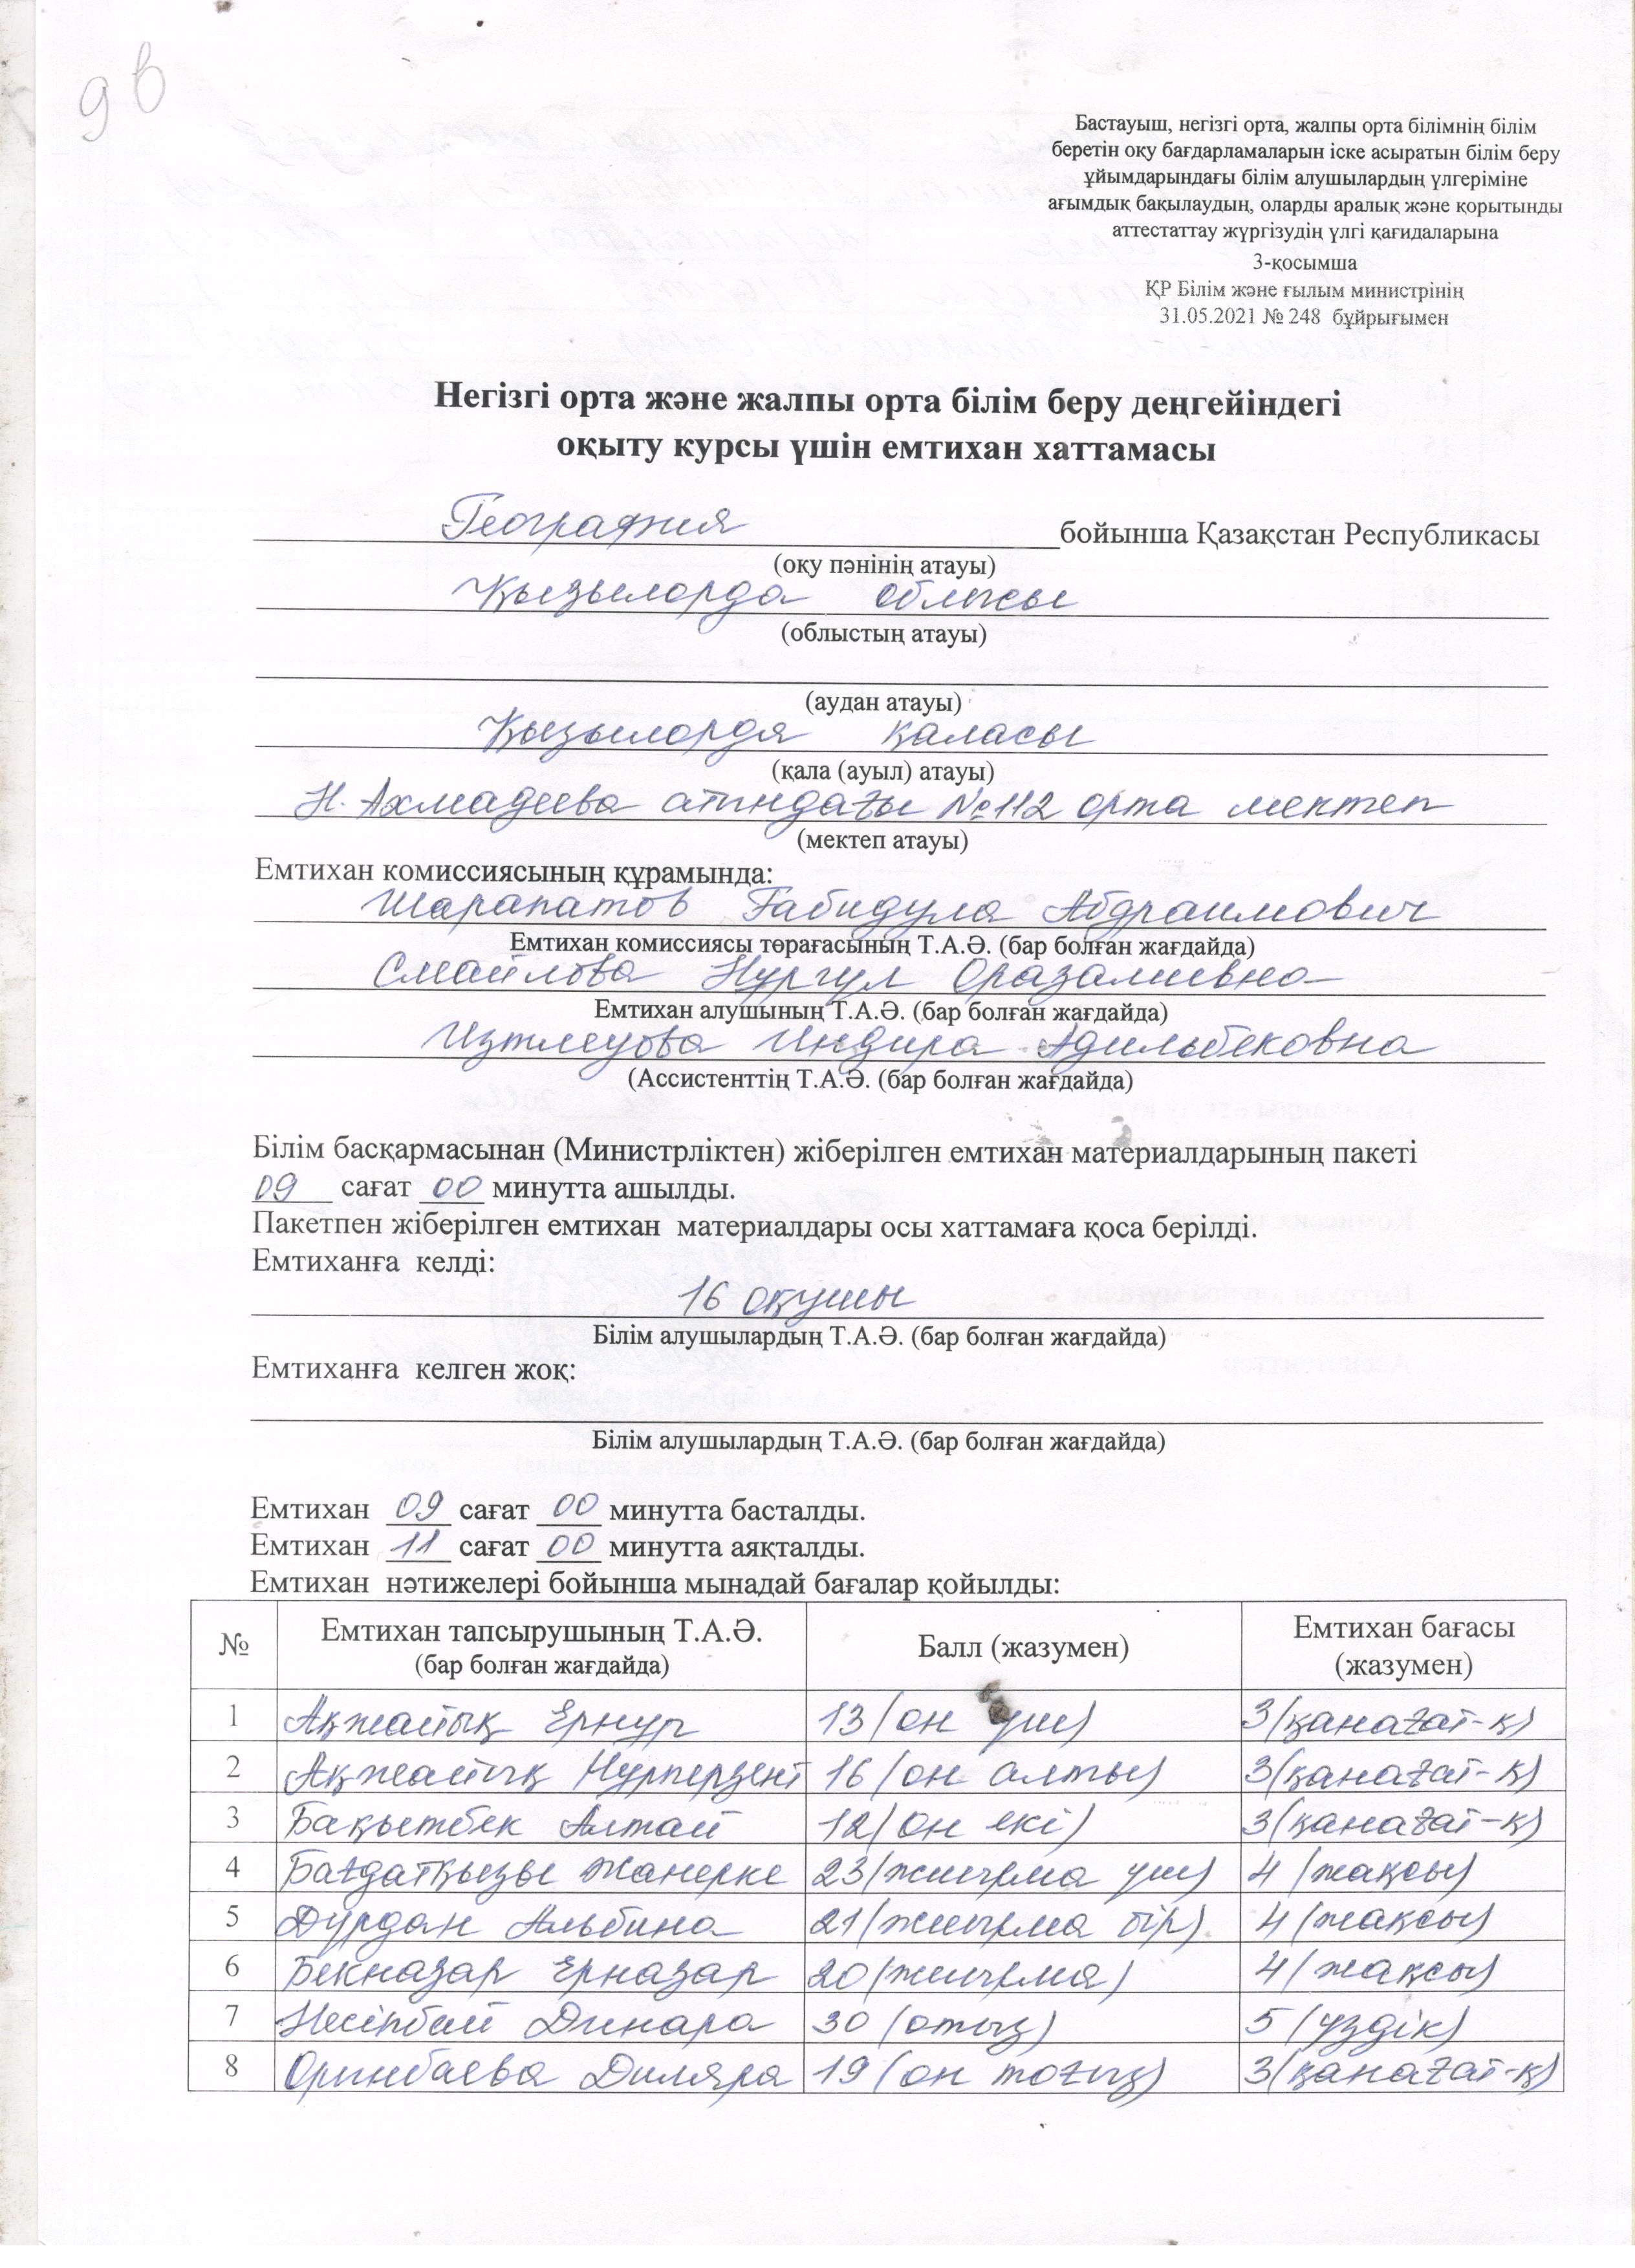 9 в
Бастауыш, негізгі орта, жалпы орта білімнің білім
беретін оқу бағдарламаларын іске асыратын білім беру
ұйымдарындағы білім алушылардың үлгеріміне
ағымдық бақылаудың, оларды аралық және қорытынды
аттестаттау жүргізудің үлгі қағидаларына
3-қосымша
ҚР Білім және ғылым министрінің
31.05.2021 № 248 бұйрығымен
Негізгі орта және жалпы орта білім беру деңгейіндегі
оқыту курсы үшін емтихан хаттамасы
География бойынша Қазақстан Республикасы
(оқу пәнінің атауы)
Қызылорда облысы
(облыстың атауы)
(аудан атауы)
Қызылорда қаласы
(қала (ауыл) атауы)
Н. Ахмадеева атындағы №112 орта мектеп
(мектеп атауы)
Емтихан комиссиясының құрамында:
Шарапатов Габидулла Абдраимович
Емтихан комиссиясы төрағасының Т.А.Ә. (бар болған жағдайда)
Смайлова Нургул Оразалиевна
Емтихан алушының Т.А.Ә. (бар болған жағдайда)
Изтлеуова Индира Адильбековна
(Ассистенттің Т.А.Ә. (бар болған жағдайда)
Білім басқармасынан (Министрліктен) жіберілген емтихан материалдарының пакеті
09 сағат 00 минутта ашылды.
Пакетпен жіберілген емтихан материалдары осы хаттамаға қоса берілді.
Емтиханға келді:
16 оқушы
Білім алушылардың Т.А.Ә. (бар болған жағдайда)
Емтиханға келген жоқ:
Білім алушылардың Т.А.Ә. (бар болған жағдайда)
Емтихан 09 сағат 00 минутта басталды.
Емтихан 11 сағат 00 минутта аяқталды.
Емтихан нәтижелері бойынша мынадай бағалар қойылды:
№ Емтихан тапсырушының Т.А.Ә. (бар болған жағдайда) Балл (жазумен) Емтихан бағасы (жазумен)
1 Ақжайық Ернұр 13 (он үш) 3(қанағат-қ)
2 Ақжайық Нұрперзент 16 (он алты) 3(қанағат-қ)
3 Бақытбек Алтай 12(он екі) 3(қанағат-қ)
4 Бағдатқызы Жанерке 23(жиырма үш) 4 (жақсы)
5 Дұрдан Альбина 21(жиырма бір). 4 (жақсы)
6 Бекназар Ерназар 20(жиырма) 4( жақсы)
7 Несіпбай Динара 30 (отыз) 5 (үздік)
8 Орынбаева Диляра 19 (он тоғыз) 3(қанағат-қ)